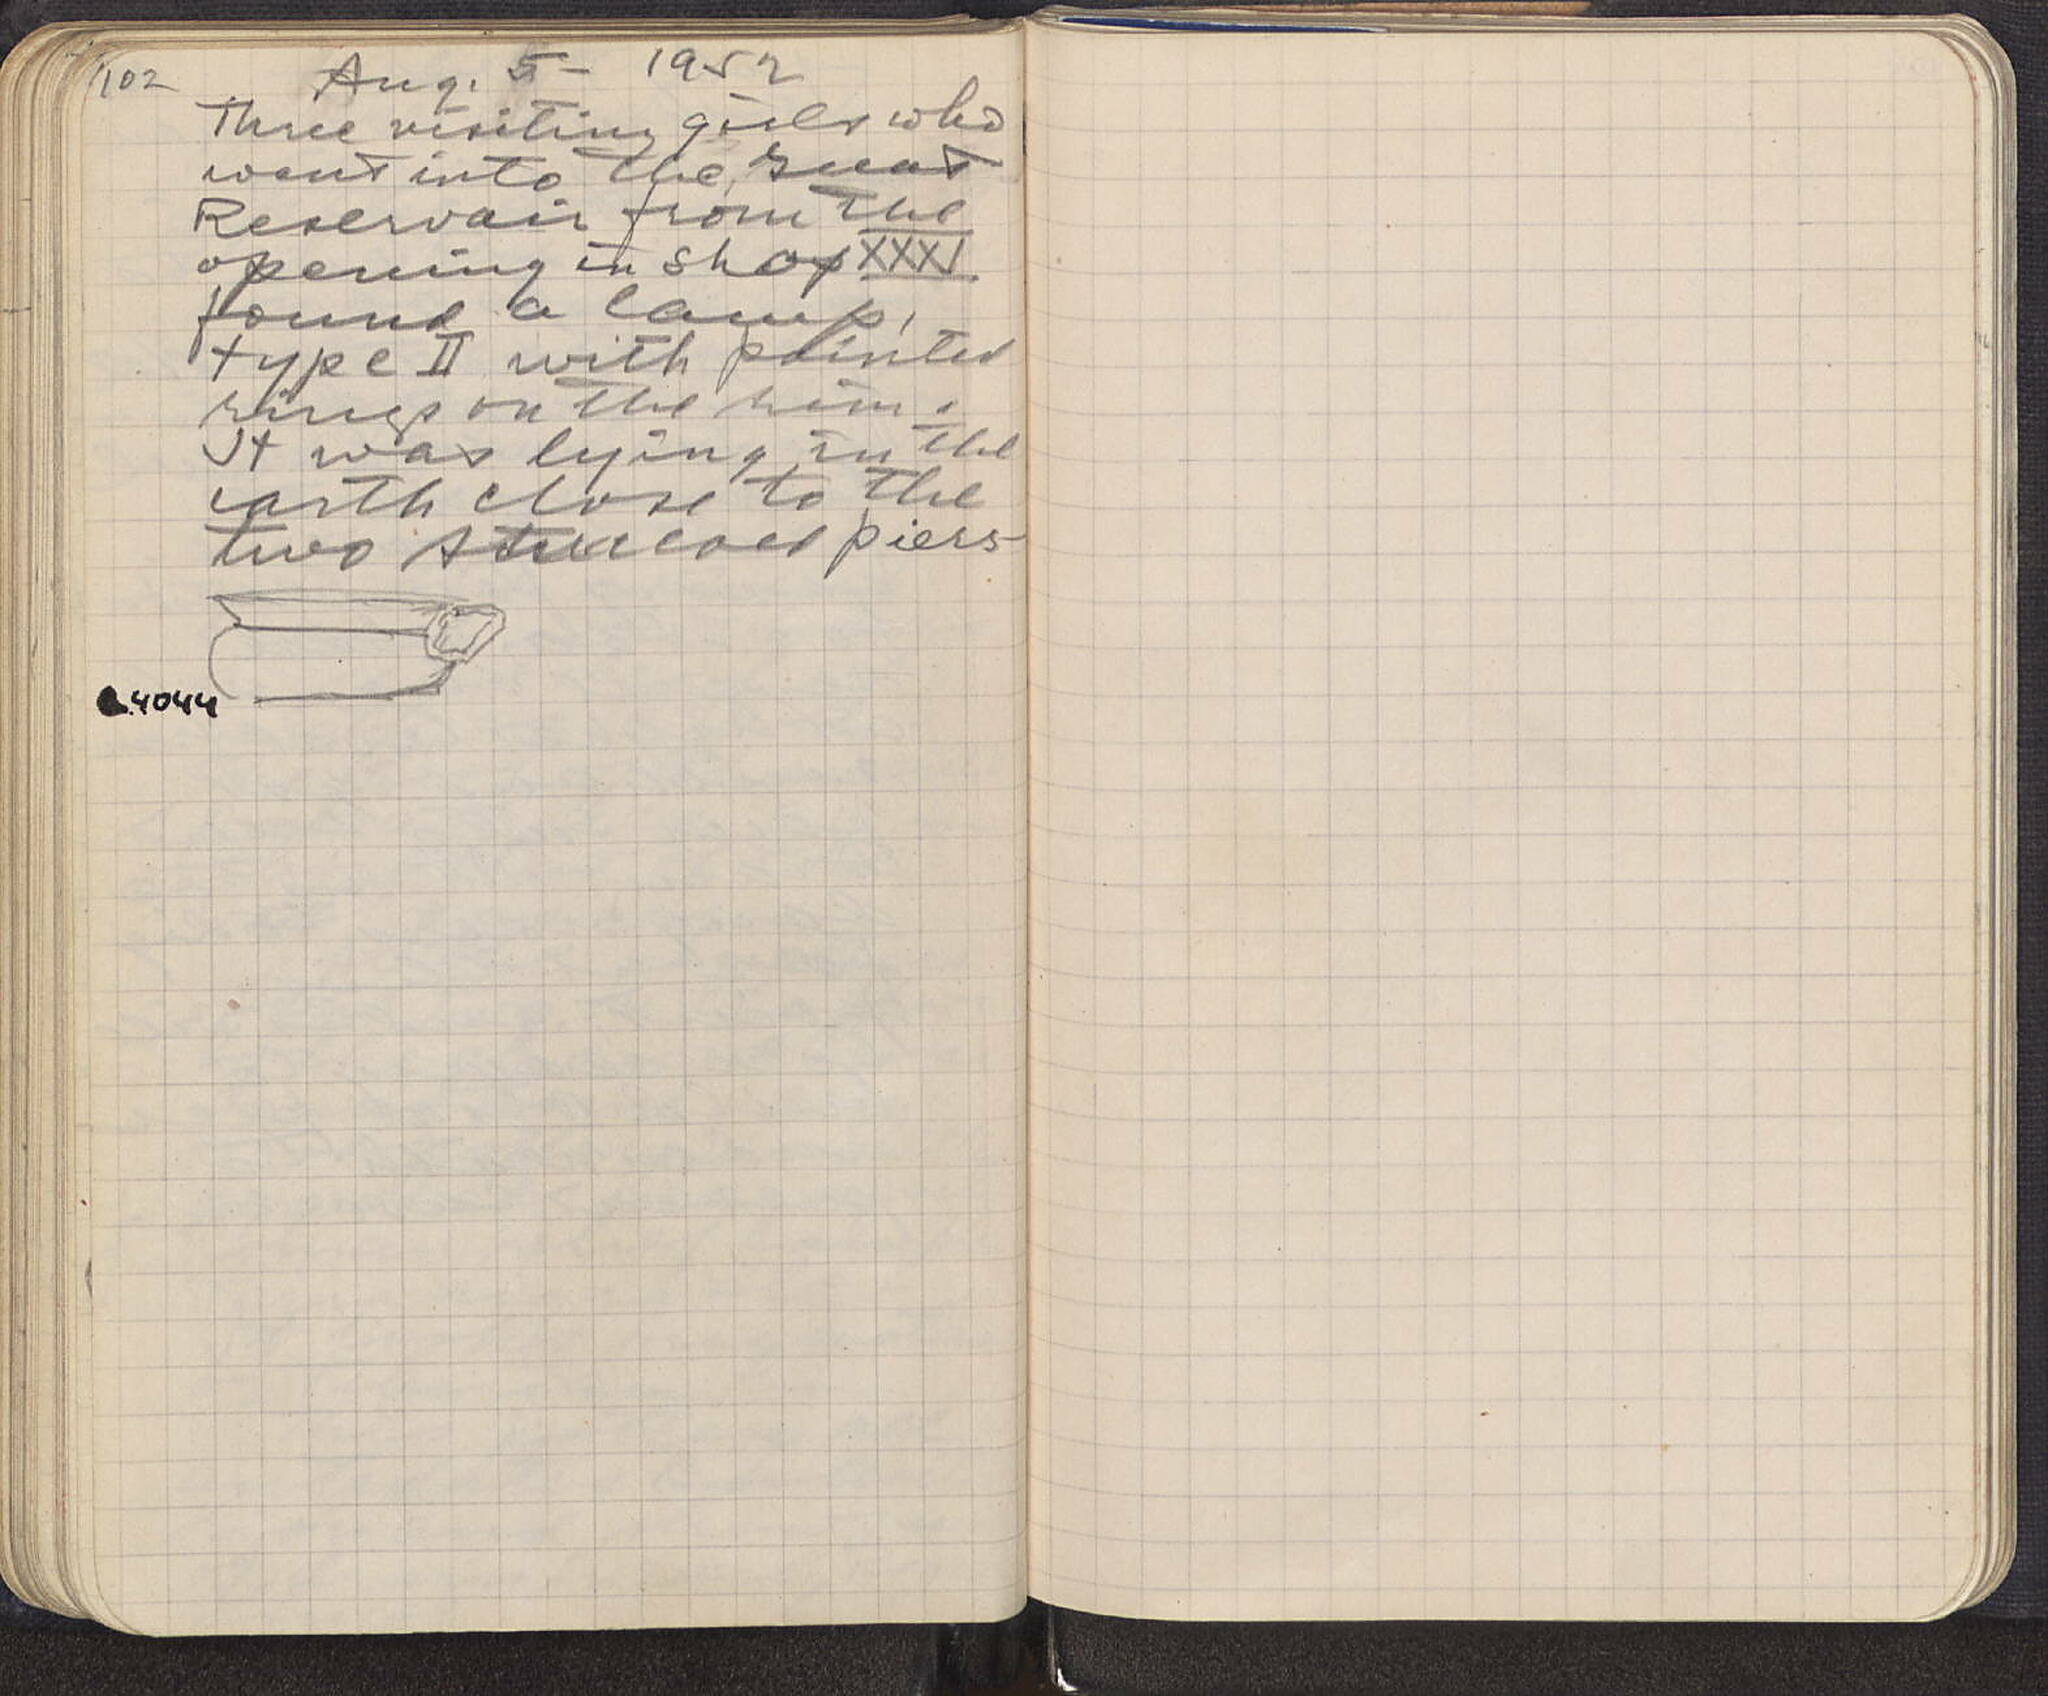 102
Aug. 5 - 1952
Three visiting girls who
went into the great
Reservoir from the
opening in shop XXXI
found a lamp,
type II with painted
rings on the rim.
It was lying in the
earth close to the
two stuccoed piers
L4044